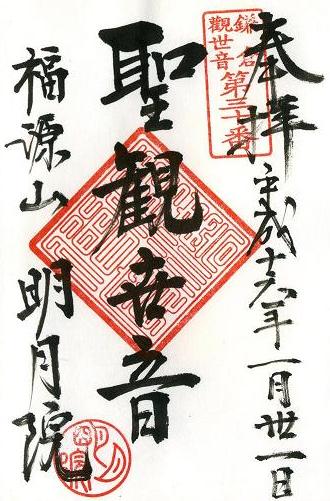 奉拝
平成十六年一月丗一日
鎌倉
觀世音
第三十番
聖観世音
福源山 明月院